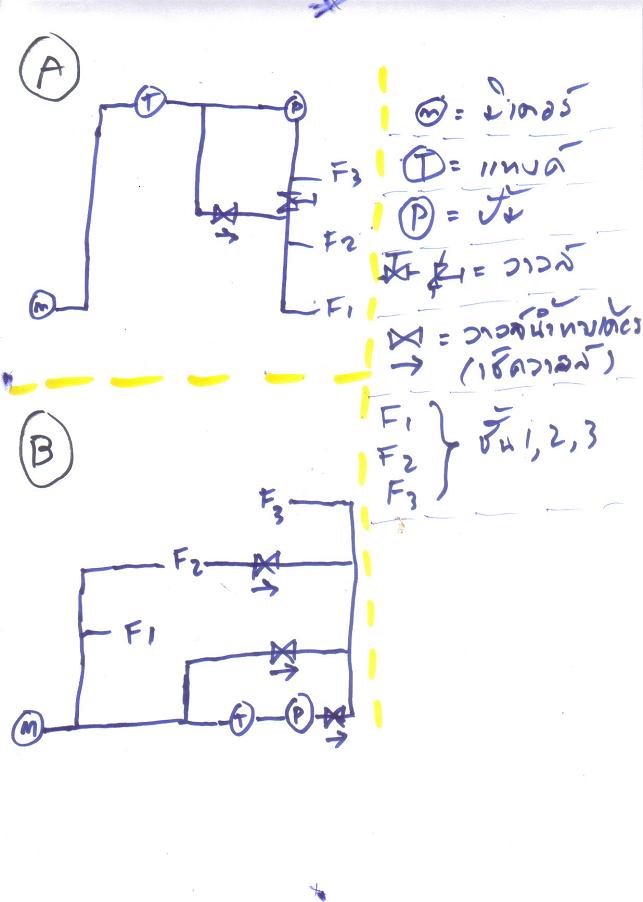 A
T
P
F3
F2
F1
m
m = มิเตอร์
T = แทงค์
P = ปั้ม
= วาวล์
= วาวล์น้ำทางเดียว
(เช็ควาวล์)
F1
F2
F3
ชั้น 1, 2, 3
B
F3
F2
F1
M
T
P